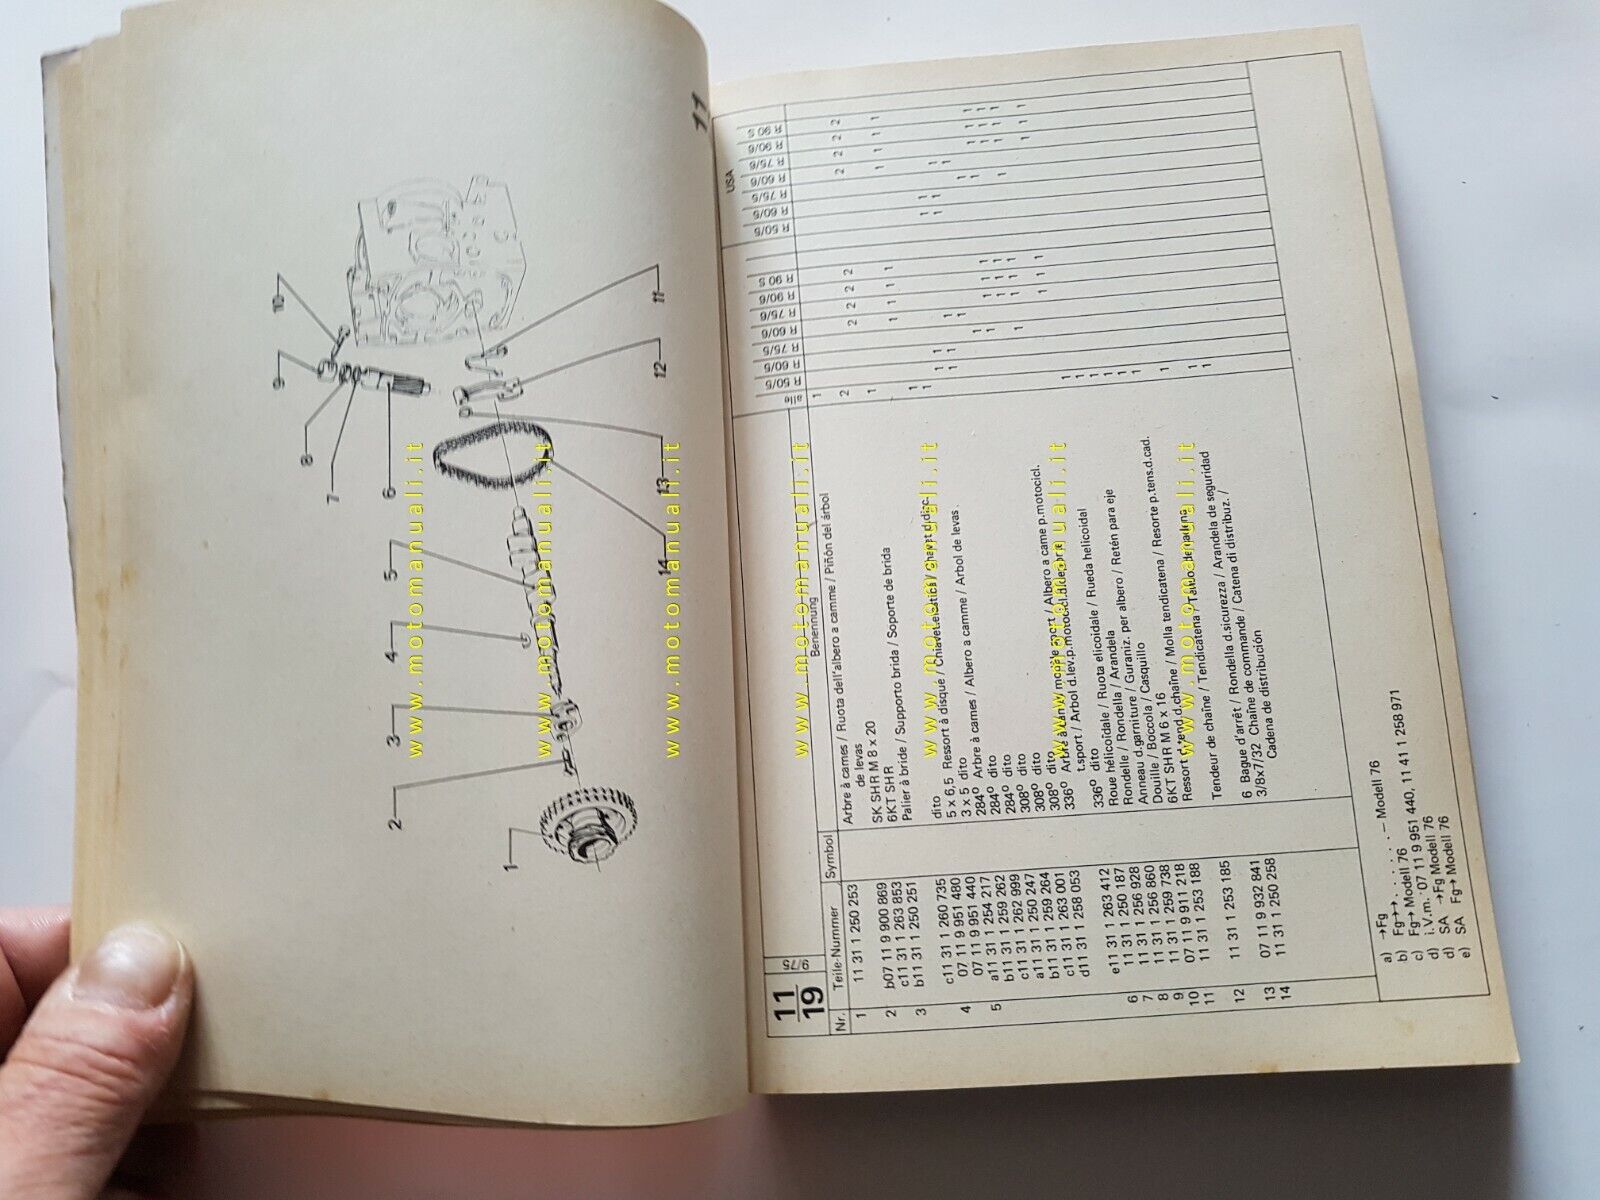 11
1
2
3
4
5
6
7
8
9
10
11
12
13
14
11
19
9/75
Nr. Teile-Nummer Symbol Benennung
alle R 50/5 R 60/5 R 75/5 R 60/6 R 75/6 R 90/6 R 90 S
USA
R 50/5 R 60/5 R 75/5 R 60/6 R 75/6 R 90/6 R 90 S
1 11 31 1 250 253 Arbre à cames / Ruota dell'albero a camme / Piñón del árbol 1
de levas
2 b07 11 9 900 869 SK SHR M 8 x 20 2 2 2 2 2 2 2 2 2
c11 31 1 263 853 6KT SHR
3 b11 31 1 250 251 Palier à bride / Supporto brida / Soporte de brida 1
c11 31 1 260 735 dito
4 07 11 9 951 480 5 x 6,5 Ressort à disque
07 11 9 951 440 3 x 5 dito
5 a11 31 1 254 217 284° Arbre à cames / Albero a camme / Arbol de levas
b11 31 1 259 262 284° dito
c11 31 1 262 999 284° dito
a11 31 1 250 247 308° dito
b11 31 1 259 264 308° dito
c11 31 1 263 001 308° dito
d11 31 1 258 053 336° / Albero a came p.motocicl.
t.sport / Arbol d.lev.p.
e11 31 1 263 412 336° dito
6 11 31 1 250 187 Roue hélicoïdale / Ruota elicoidale / Rueda helicoidal
7 11 31 1 256 928 Rondelle / Rondella / Arandela
8 11 31 1 256 860 Anneau d.garniture / Guraniz. per albero / Retén para eje
9 11 31 1 259 738 Douille / Boccola / Casquillo
10 07 11 9 911 218 6KT SHR M 6 x 16
11 11 31 1 253 188 Ressort tend.d.chaîne / Molla tendicatena / Resorte p.tens.d.cad.
12 11 31 1 253 185 Tendeur de chaîne / Tendicatena
13 07 11 9 932 841 6 Bague d'arrêt / Rondella d.sicurezza / Arandela de seguridad
14 11 31 1 250 258 3/8x7/32 Chaîne de commande / Catena di distribuz. /
Cadena de distribución
a) →Fg
b) Fg→, . . . . . . — Modell 76
c) Fg→ Modell 76
d) i.V.m. 07 11 9 951 440, 11 41 1 258 971
d) SA →Fg Modell 76
e) SA Fg→ Modell 76
www.motomanuali.it
www.motomanuali.it
www.motomanuali.it
www.motomanuali.it
www.motomanuali.it
www.motomanuali.it
www.motomanuali.it